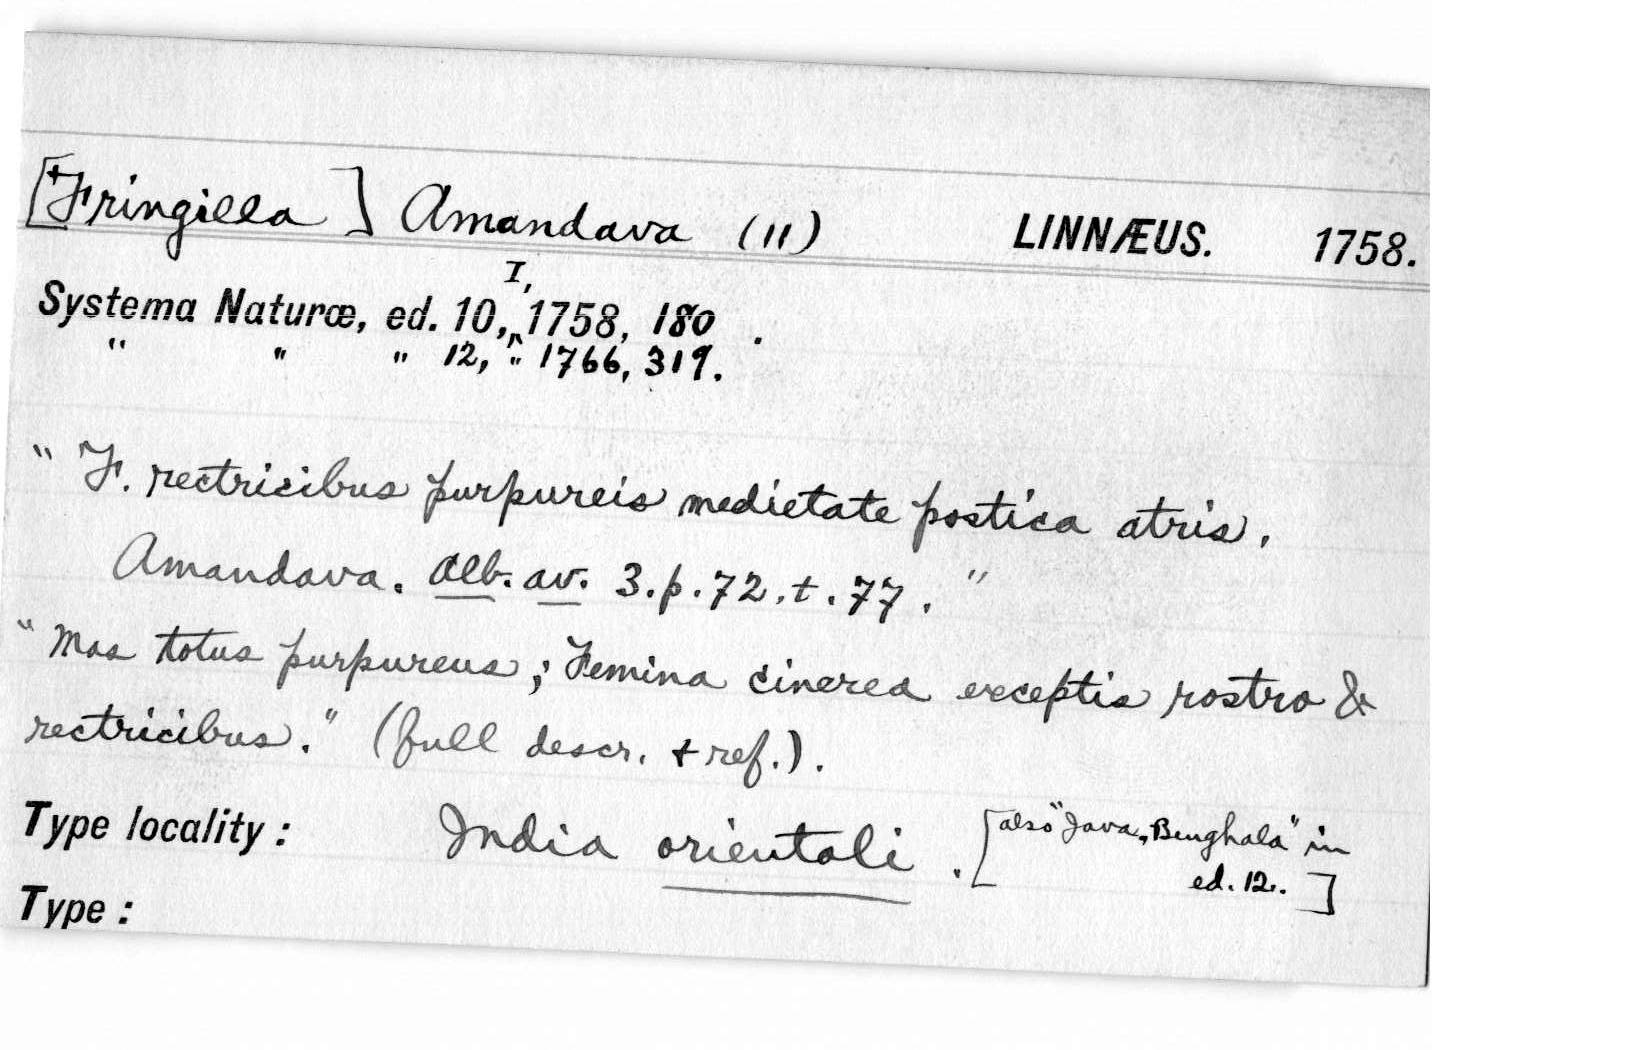 [Fringilla] Amandava (11) LINNÆUS. 1758.
Systema Naturæ, ed. 10, I, 1758, 180.
" " " 12, " 1766, 319.
"F. rectricibus purpureis medietate postica atris.
Amandava. Alb. av. 3. p. 72. t. 77."
"Mas totus purpureus; Femina cinerea exceptis rostro &
rectricibus." (full descr. + ref.).
Type locality: India orientali. [also "Java, Benghala" in
ed. 12.]
Type: